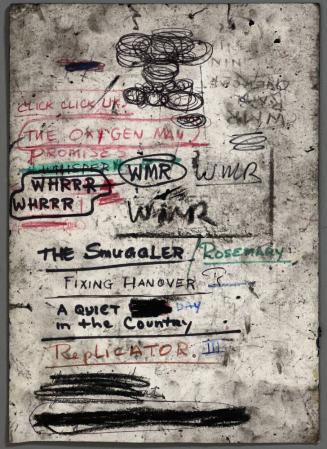 CLICK CLICK UK.
THE OXYGEN MAN
PROMISES
WHISPERY
WMR
WMR
WHRRR
WHRRR
WMR
THE SMUGGLER / ROSEMARY
FIXING HANOVER R
A QUIET DAY
in the Country
REPLICATOR. III